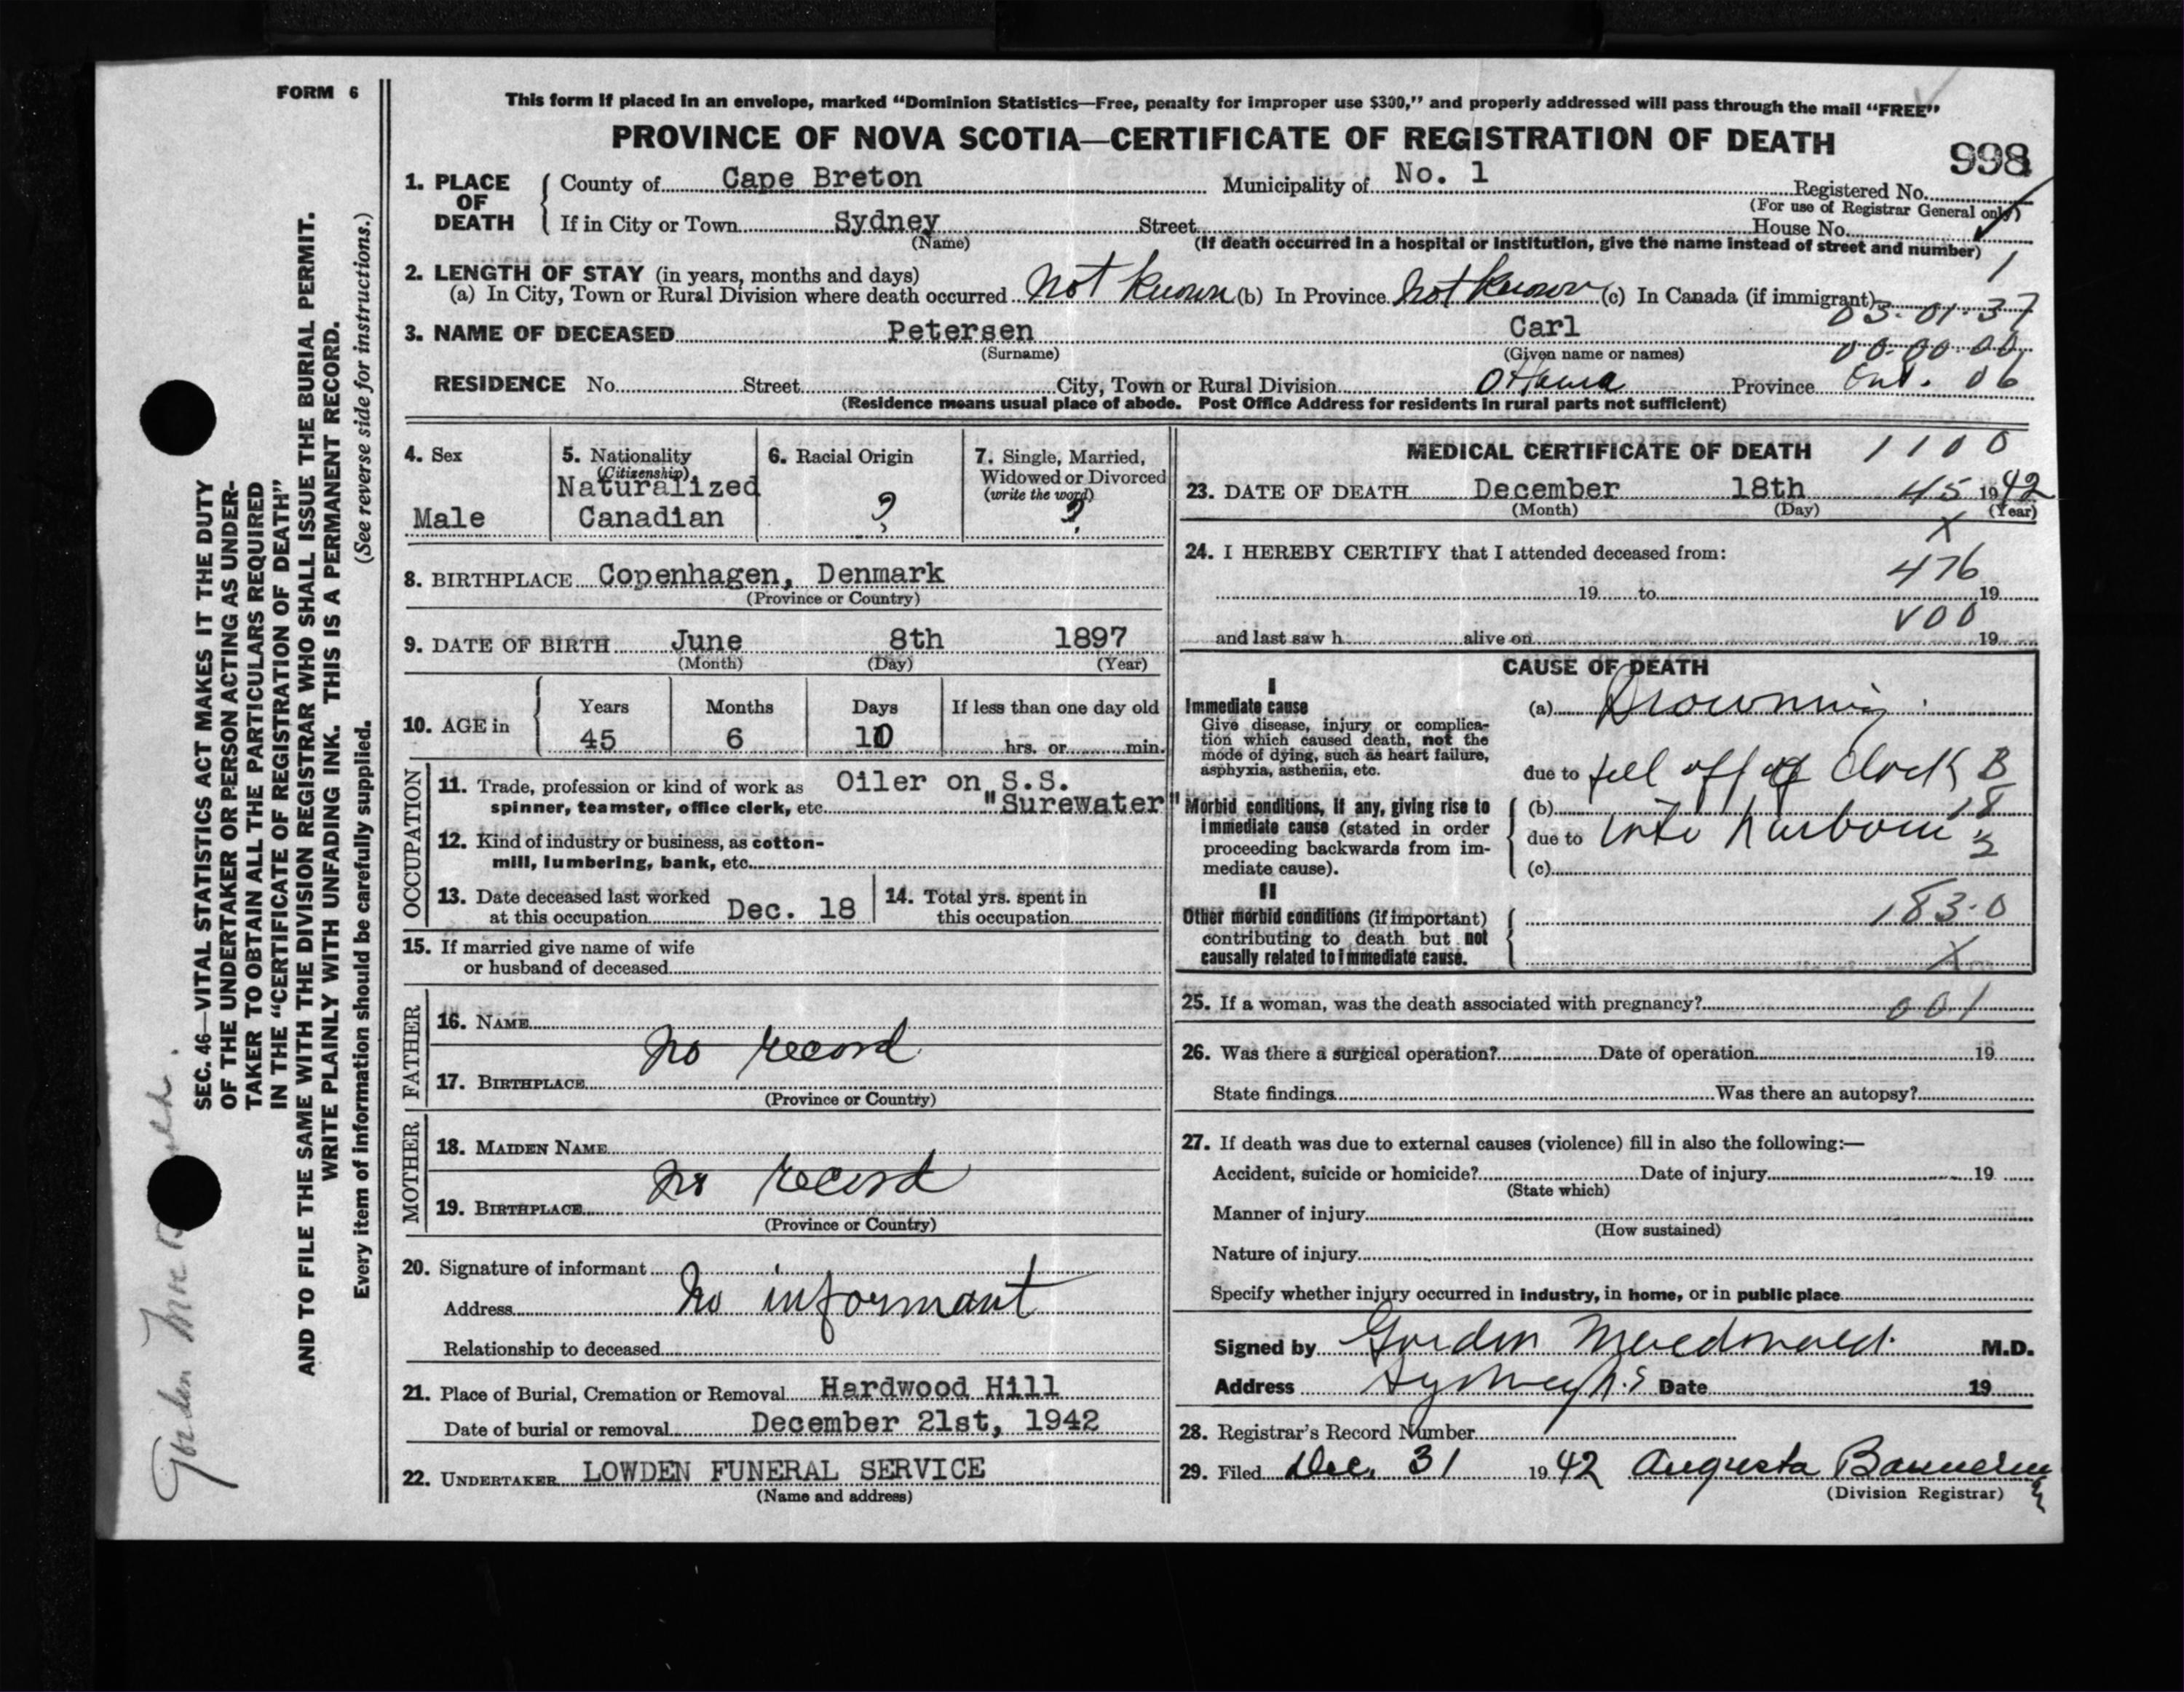 FORM 6
This form if placed in an envelope, marked “Dominion Statistics—Free, penalty for improper use $300,” and properly addressed will pass through the mail “FREE”
PROVINCE OF NOVA SCOTIA—CERTIFICATE OF REGISTRATION OF DEATH
998
1. PLACE OF DEATH
County of Cape Breton Municipality of No. 1 Registered No.
(For use of Registrar General only)
If in City or Town Sydney Street House No.
(Name) (If death occurred in a hospital or institution, give the name instead of street and number)
1
2. LENGTH OF STAY (in years, months and days)
(a) In City, Town or Rural Division where death occurred not known (b) In Province not known (c) In Canada (if immigrant)
03-01-37
3. NAME OF DECEASED Petersen Carl
(Surname) (Given name or names)
00-00-00
RESIDENCE No. Street City, Town or Rural Division Ottawa Province Ont. 06
(Residence means usual place of abode. Post Office Address for residents in rural parts not sufficient)
4. Sex
Male
5. Nationality
(Citizenship)
Naturalized
Canadian
6. Racial Origin
?
7. Single, Married,
Widowed or Divorced
(write the word)
?
8. BIRTHPLACE Copenhagen, Denmark
(Province or Country)
9. DATE OF BIRTH June 8th 1897
(Month) (Day) (Year)
10. AGE in
Years Months Days If less than one day old
45 6 10 hrs. or min.
OCCUPATION
11. Trade, profession or kind of work as Oiler on S.S.
spinner, teamster, office clerk, etc. "Surewater"
12. Kind of industry or business, as cotton-
mill, lumbering, bank, etc.
13. Date deceased last worked
at this occupation Dec. 18
14. Total yrs. spent in
this occupation
15. If married give name of wife
or husband of deceased
FATHER
16. NAME
no record
17. BIRTHPLACE
(Province or Country)
MOTHER
18. MAIDEN NAME
no record
19. BIRTHPLACE
(Province or Country)
20. Signature of informant
Address No informant
Relationship to deceased
21. Place of Burial, Cremation or Removal Hardwood Hill
Date of burial or removal December 21st, 1942
22. UNDERTAKER LOWDEN FUNERAL SERVICE
(Name and address)
MEDICAL CERTIFICATE OF DEATH 1100
23. DATE OF DEATH December 18th 45 1942
(Month) (Day) (Year)
X
24. I HEREBY CERTIFY that I attended deceased from:
476
19 to 19
V00
and last saw h alive on 19
CAUSE OF DEATH
I
Immediate cause
Give disease, injury or complica-
tion which caused death, not the
mode of dying, such as heart failure,
asphyxia, asthenia, etc.
(a) Drowning
due to fell off of dock B
Morbid conditions, if any, giving rise to
immediate cause (stated in order
proceeding backwards from im-
mediate cause).
(b) 18
due to into harbour
(c)
II
Other morbid conditions (if important)
contributing to death but not
causally related to immediate cause.
183.0
X
25. If a woman, was the death associated with pregnancy? 001
26. Was there a surgical operation? Date of operation 19
State findings Was there an autopsy?
27. If death was due to external causes (violence) fill in also the following:—
Accident, suicide or homicide? Date of injury 19
(State which)
Manner of injury
(How sustained)
Nature of injury
Specify whether injury occurred in industry, in home, or in public place
Signed by Gordon Macdonald M.D.
Address Sydney N.S Date 19
28. Registrar's Record Number
29. Filed Dec. 31 1942 Augusta Bannerman
(Division Registrar)
SEC. 46—VITAL STATISTICS ACT MAKES IT THE DUTY
OF THE UNDERTAKER OR PERSON ACTING AS UNDER-
TAKER TO OBTAIN ALL THE PARTICULARS REQUIRED
IN THE “CERTIFICATE OF REGISTRATION OF DEATH”
AND TO FILE THE SAME WITH THE DIVISION REGISTRAR WHO SHALL ISSUE THE BURIAL PERMIT.
WRITE PLAINLY WITH UNFADING INK. THIS IS A PERMANENT RECORD.
Every item of information should be carefully supplied. (See reverse side for instructions.)